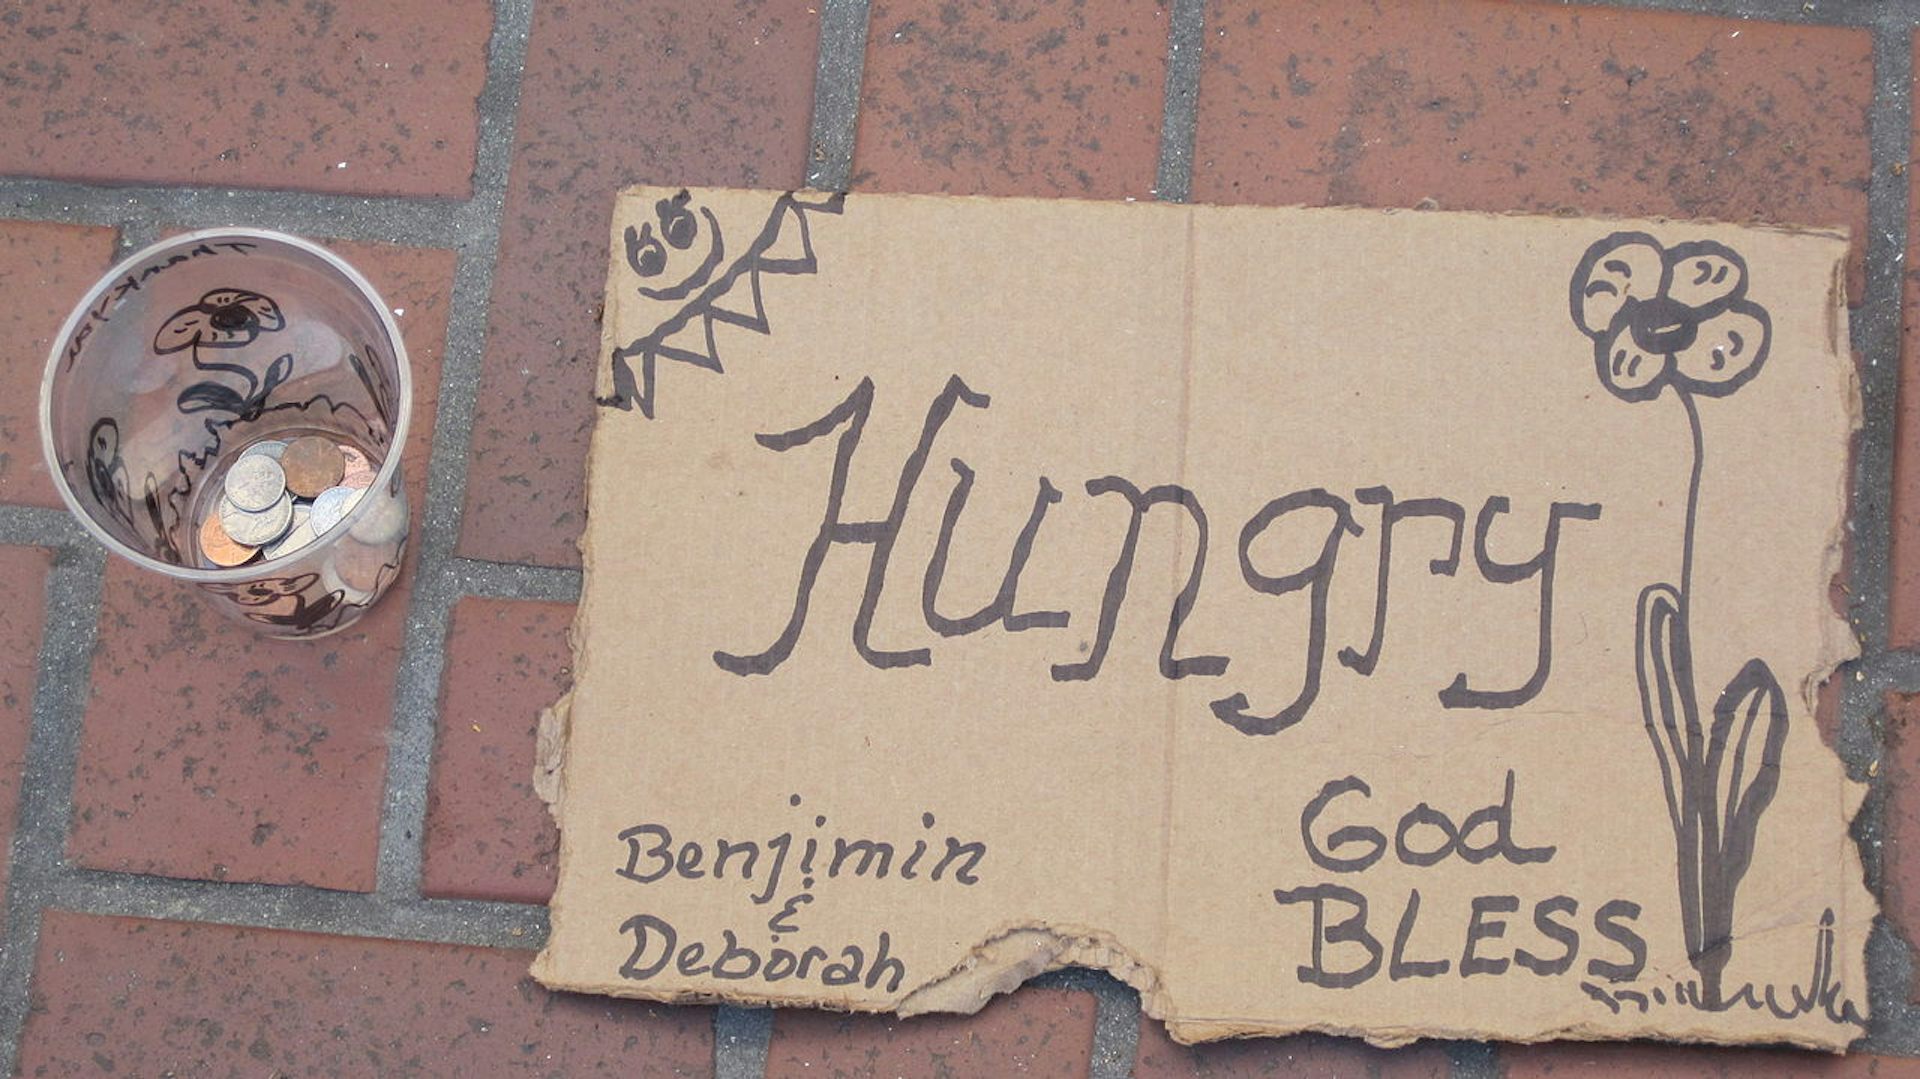 Thank you
Hungry
Benjimin
&
Deborah
God
BLESS